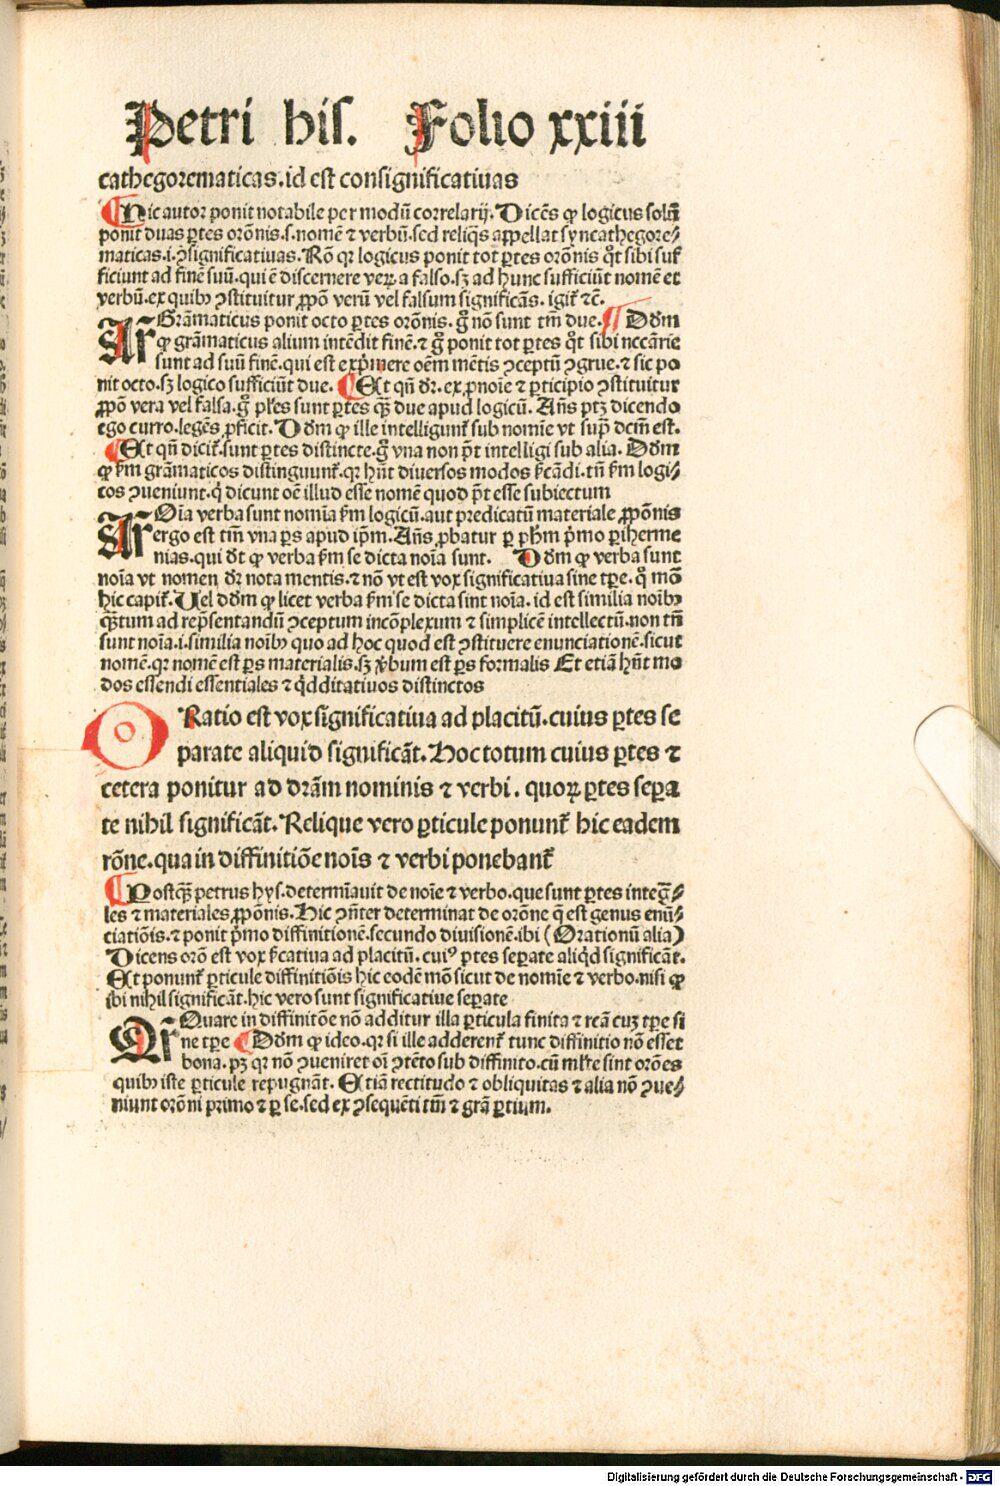 Petri hiſ. Folio xxiii
cathegorematicas.id est consignificatiuas
¶ Hic autor ponit notabile per modū correlarij. Dicēs ꝙ logicus solū
ponit duas ꝑtes orōnis.s.nomē ⁊ verbū.sed reliq̄s appellat syncathegore⸗
maticas.i.ꝯsignificatiuas. Rō qꝛ logicus ponit tot ꝑtes orōnis qͦt sibi suf
ficiunt ad finē suū.qui ē discernere verꝝ a falso.sꝫ ad hunc sufficiūt nomē et
verbū.ex quibꝰ ꝯstituitur ꝓpō verū vel falsum significās. igit̄ ⁊c̄.
Ar̄ Grāmaticus ponit octo ꝑtes orōnis. gͦ nō sunt tm̄ due. ¶ Dōm
ꝙ grāmaticus alium intēdit finē.⁊ gͦ ponit tot ꝑtes qͦt sibi nccārie
sunt ad suū finē.qui est exp̄mere oēm mētis ꝯceptū ꝯgrue.⁊ sic po
nit octo.sꝫ logico sufficiūt due. ¶ Et qn̄ dꝛ̄.ex ꝓnoīe ⁊ ꝑticipio ꝯstituitur
ꝓpō vera vel falsa.gͦ pl̄es sunt ꝑtes qꝫ̄ due apud logicū. Añs ptꝫ dicendo
ego curro.legēs ꝓficit. Dōm ꝙ ille intelligunt̄ sub nomīe vt supͣ dcīm est.
¶ Et qn̄ dicit̄.sunt ꝑtes distincte.gͦ vna non pōt intelligi sub alia. Dōm
ꝙ ẜm grāmaticos distinguunt̄.qꝛ hn̄t diuersos modos ẜcādi.tn̄ ẜm logi⸗
cos ꝯueniunt.qͥ dicunt oē illud esse nomē quod pōt esse subiectum
Ar̄ Oīa verba sunt nomīa ẜm logicū.aut predicatū materiale ꝓpōnis
ergo est tm̄ vna ꝑs apud ip̄m. Añs ꝓbatur ꝑ phm̄ pͥmo ꝑiherme
nias.qui dt̄ ꝙ verba ẜm se dicta noīa sunt. Dōm ꝙ verba sunt
noīa vt nomen dꝛ̄ nota mentis.⁊ nō vt est vox significatiua sine tꝑe. qͦ mō
hic capit̄. Uel dōm ꝙ licet verba ẜm se dicta sint noīa. id est similia noībꝰ
qꝫ̄tum ad rep̄sentandū ꝯceptum incōplexum ⁊ simplicē intellectū.non tn̄
sunt noīa.i.similia noībꝰ quo ad hoc quod est ꝯstituere enunciationē.sicut
nomē.qꝛ nomē est ꝑs materialis.sꝫ v̄bum est ꝑs formalis Et etiā hn̄t mo
dos essendi essentiales ⁊ qͥdditatiuos distinctos
O Ratio est vox significatiua ad placitū.cuius ꝑtes se
parate aliquid significāt. Hoc totum cuius ꝑtes ⁊
cetera ponitur ad dr̄am nominis ⁊ verbi. quoꝝ ꝑtes sepa
te nihil significāt. Relique vero ꝑticule ponunt̄ hic eadem
rōne.qua in diffinitiōe noīs ⁊ verbi ponebant̄
¶ Postqꝫ̄ petrus hys.determīauit de noīe ⁊ verbo.que sunt ꝑtes integͣ⸗
les ⁊ materiales ꝓpōnis. Hic ꝯn̄ter determinat de orōne q̄ est genus enū⸗
ciatiōis.⁊ ponit pͥmo diffinitionē.secundo diuisionē.ibi (Orationū alia)
Dicens orō est vox ẜcatiua ad placitū. cuiꝰ ꝑtes seꝑate aliqͥd significāt.
Et ponunt̄ ꝑticule diffinitiōis hic eodē mō sicut de nomīe ⁊ verbo.nisi ꝙ
ibi nihil significāt.hic vero sunt significatiue seꝑate
Qr̄ Quare in diffinitōe nō additur illa ꝑticula finita ⁊ rc̄ā cuꝫ tꝑe si
ne tꝑe ¶ Dōm ꝙ ideo.qꝛ si ille adderent̄ tunc diffinitio nō esset
bona.pꝫ qꝛ nō ꝯueniret oī ꝯtēto sub diffinito.cū ml̄te sint orōes
quibꝰ iste ꝑticule repugnāt. Etiā rectitudo ⁊ obliquitas ⁊ alia nō ꝯue⸗
niunt orōni primo ⁊ ꝑ se.sed ex ꝯsequēti tm̄ ⁊ grā ꝑtium.
Digitalisierung gefördert durch die Deutsche Forschungsgemeinschaft - DFG